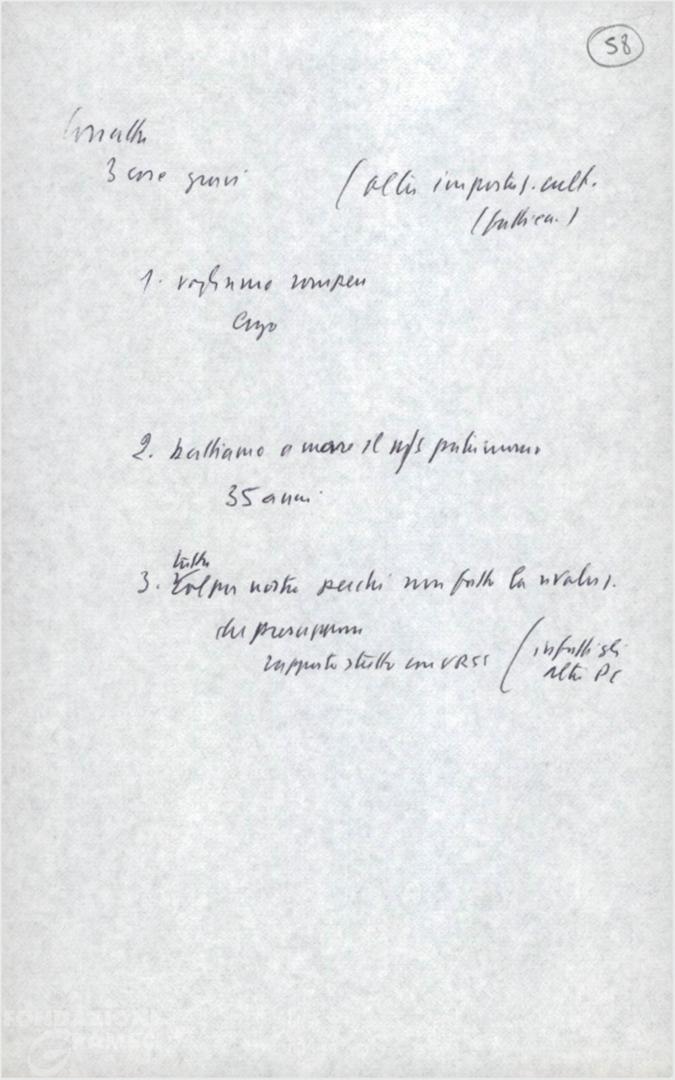 58
Cossutta
3 cose gravi
(altri impostaz. cult.
(
1. vogliamo rompere
2. buttiamo a mare il ns patrimonio
35 anni
tutta
3. Colpa nostra perché non fatto la rivoluz.
che presuppone
rapporto stretto con URSS
(infatti gli
altri PC
FONDAZIONE
GRAMSCI